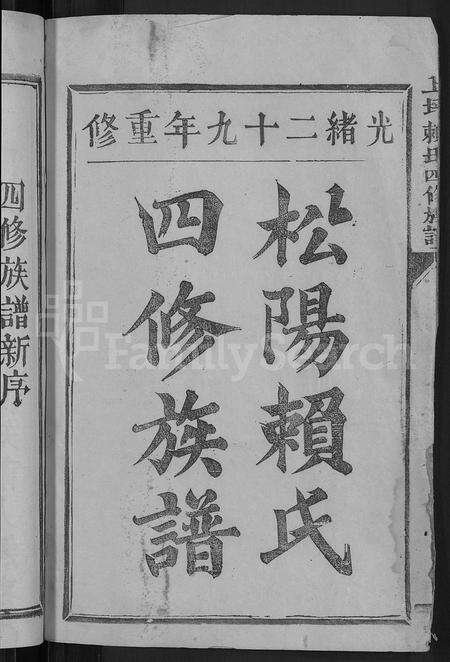 光緒二十九年重修
松陽賴氏
四修族譜
四修族譜新序
賴氏四修族譜
FamilySearch